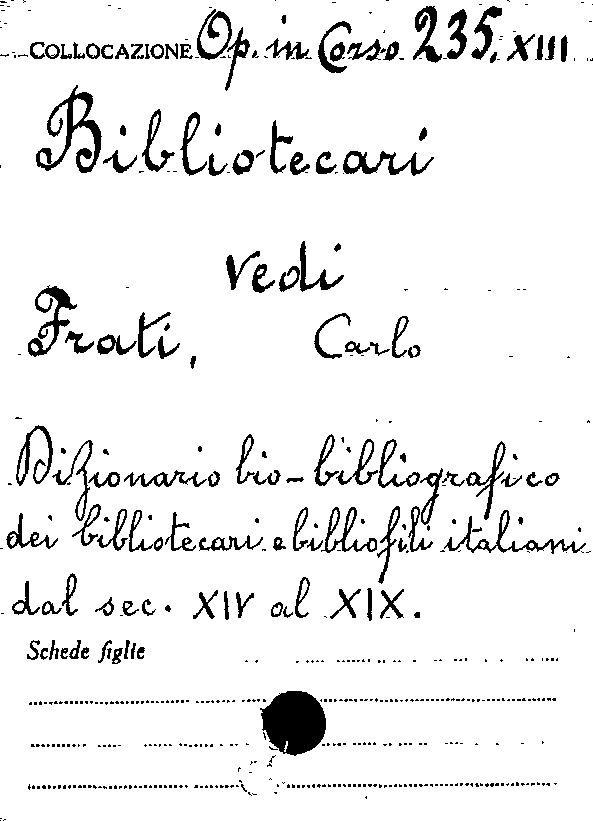 COLLOCAZIONE Op. in Corso 235. XIII
Bibliotecari
vedi
Frati, Carlo
Dizionario bio-bibliografico
dei bibliotecari e bibliofili italiani
dal sec. XIV al XIX.
Schede figlie